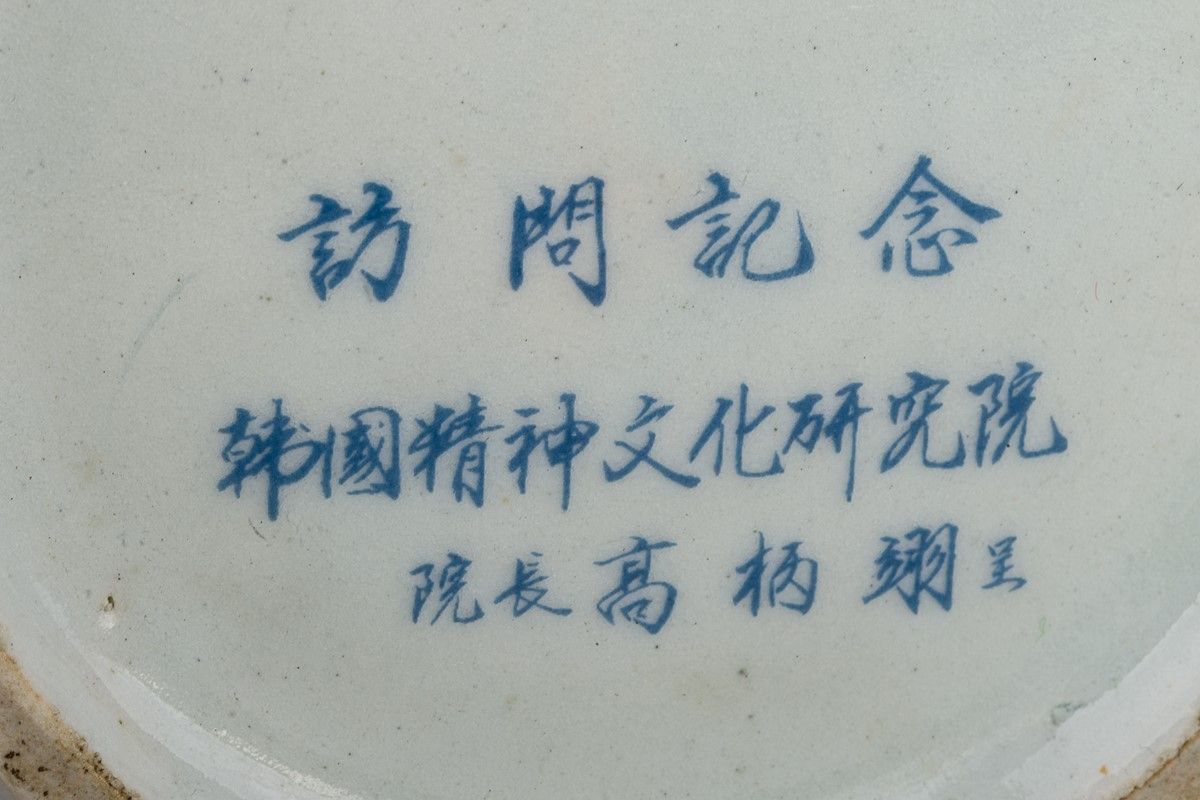 訪問記念
韓國精神文化研究院
院長高柄翊呈